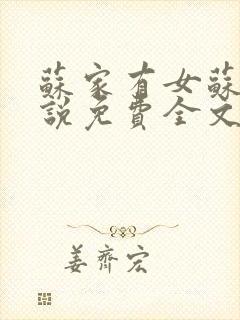 蘇家有女蘇
說免費全文
姜齊宏